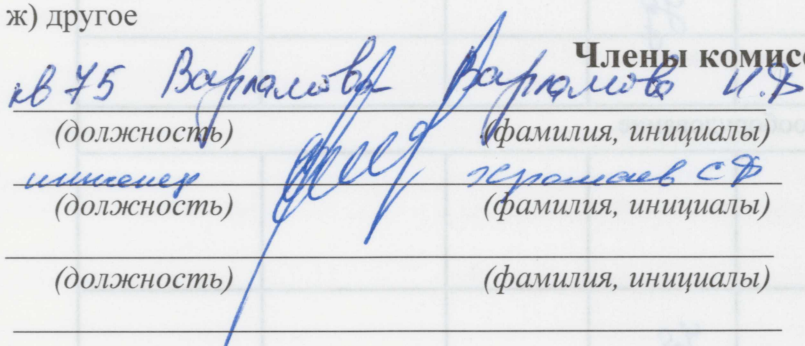 ж) другое
Члены комисс
кв 75 Варламова Варламова И.Ф
(должность) (фамилия, инициалы)
инженер С Ф
(должность) (фамилия, инициалы)
(должность) (фамилия, инициалы)